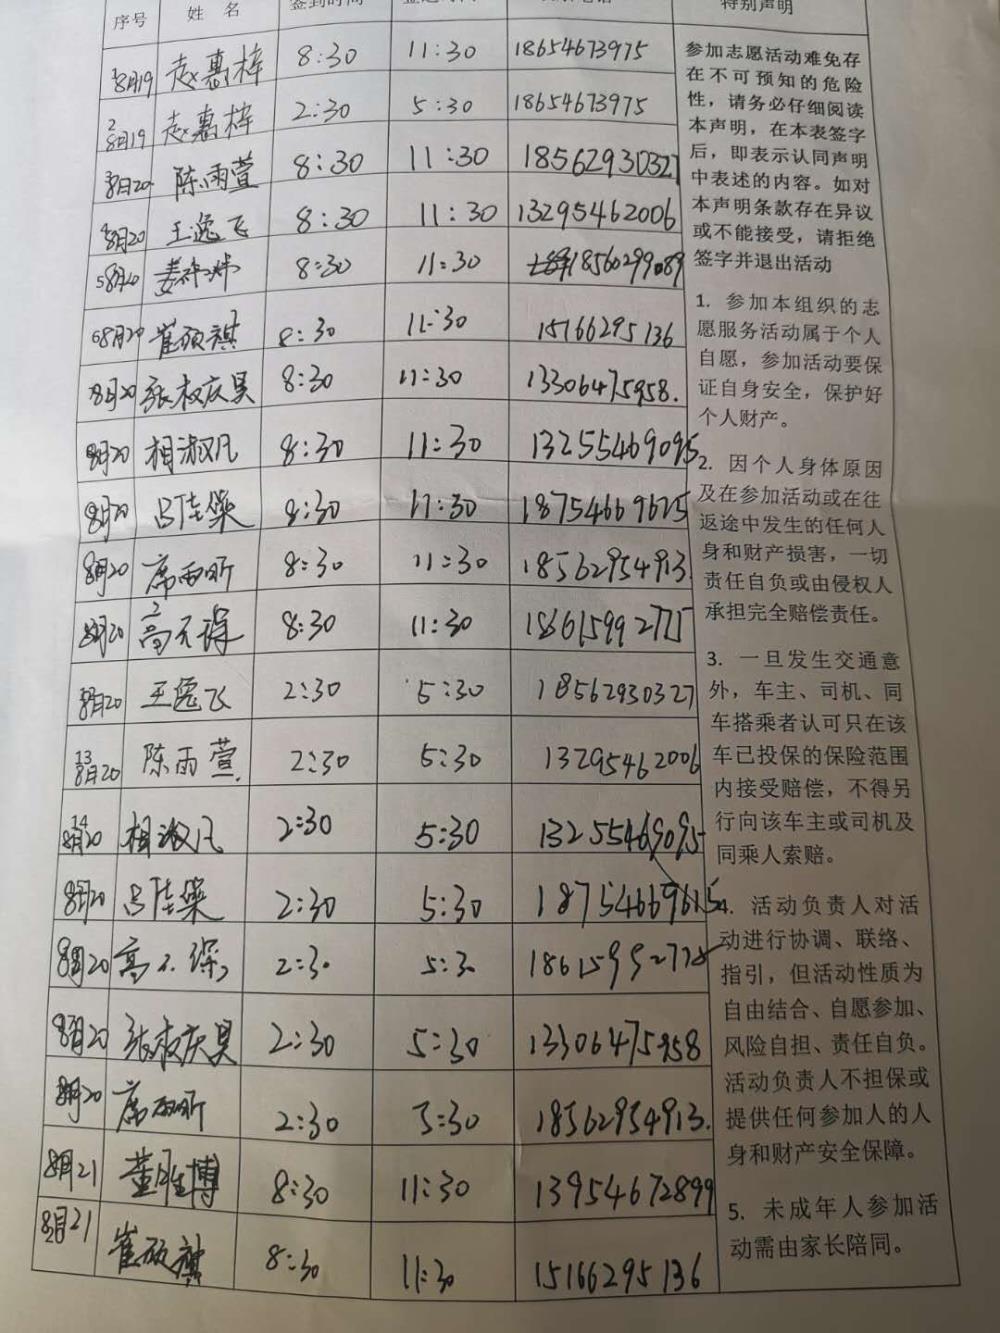 序号 姓 名 签到时间 特别声明
8月19 赵惠梓 8:30 11:30 18654673975
2 8月19 赵惠梓 2:30 5:30 18654673975
8月20 陈雨萱 8:30 11:30 18562930327
8月20 王逸飞 8:30 11:30 13295462006
5 8月20 8:30 11:30 18560299089
6 8月20 崔硕祺 8:30 11:30 15166295136
8月20 张权庆昊 8:30 11:30 13306475958.
8月20 相淑凡 8:30 11:30 13255469095
8月20 吕佳燊 8:30 11:30 18754669615
8月20 席雨昕 8:30 11:30 18562954913.
8月20 8:30 11:30 18661599277
8月20 王逸飞 2:30 5:30 18562930327
13 8月20 陈雨萱. 2:30 5:30 13295462006
14 8月20 相淑凡 2:30 5:30 13255469095
8月20 吕佳燊 2:30 5:30 18754669615
8月20 2:30 5:30
8月20 张权庆昊 2:30 5:30 13306475958
8月20 席雨昕 2:30 5:30 18562954913.
8月21 董胜博 8:30 11:30 13954672899
8月21 崔硕祺 8:30 11:30 15166295136
参加志愿活动难免存
在不可预知的危险
性，请务必仔细阅读
本声明，在本表签字
后，即表示认同声明
中表述的内容。如对
本声明条款存在异议
或不能接受，请拒绝
签字并退出活动
1. 参加本组织的志
愿服务活动属于个人
自愿，参加活动要保
证自身安全，保护好
个人财产。
2. 因个人身体原因
及在参加活动或在往
返途中发生的任何人
身和财产损害，一切
责任自负或由侵权人
承担完全赔偿责任。
3. 一旦发生交通意
外，车主、司机、同
车搭乘者认可只在该
车已投保的保险范围
内接受赔偿，不得另
行向该车主或司机及
同乘人索赔。
4. 活动负责人对活
动进行协调、联络、
指引，但活动性质为
自由结合、自愿参加、
风险自担、责任自负。
活动负责人不担保或
提供任何参加人的人
身和财产安全保障。
5. 未成年人参加活
动需由家长陪同。